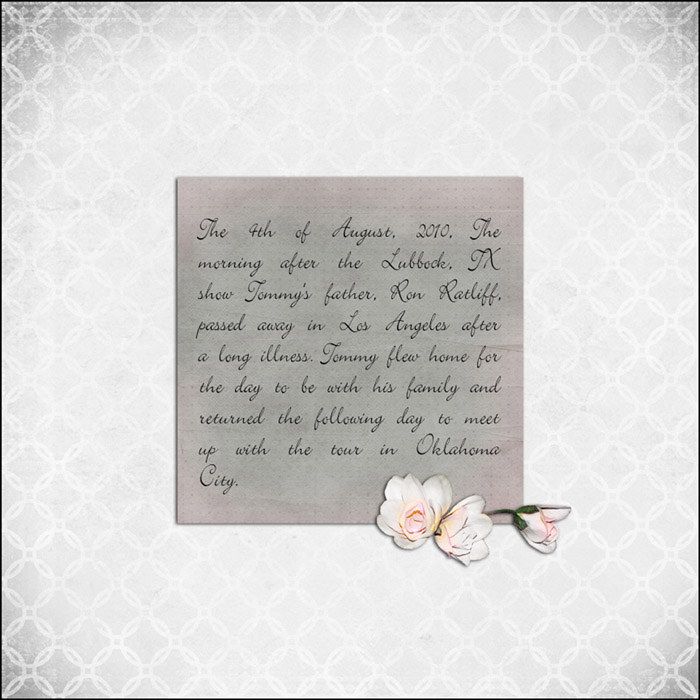 The 4th of August, 2010, The
morning after the Lubbock, TX
show Tommy's father, Ron Ratliff,
passed away in Los Angeles after
a long illness. Tommy flew home for
the day to be with his family and
returned the following day to meet
up with the tour in Oklahoma
City.